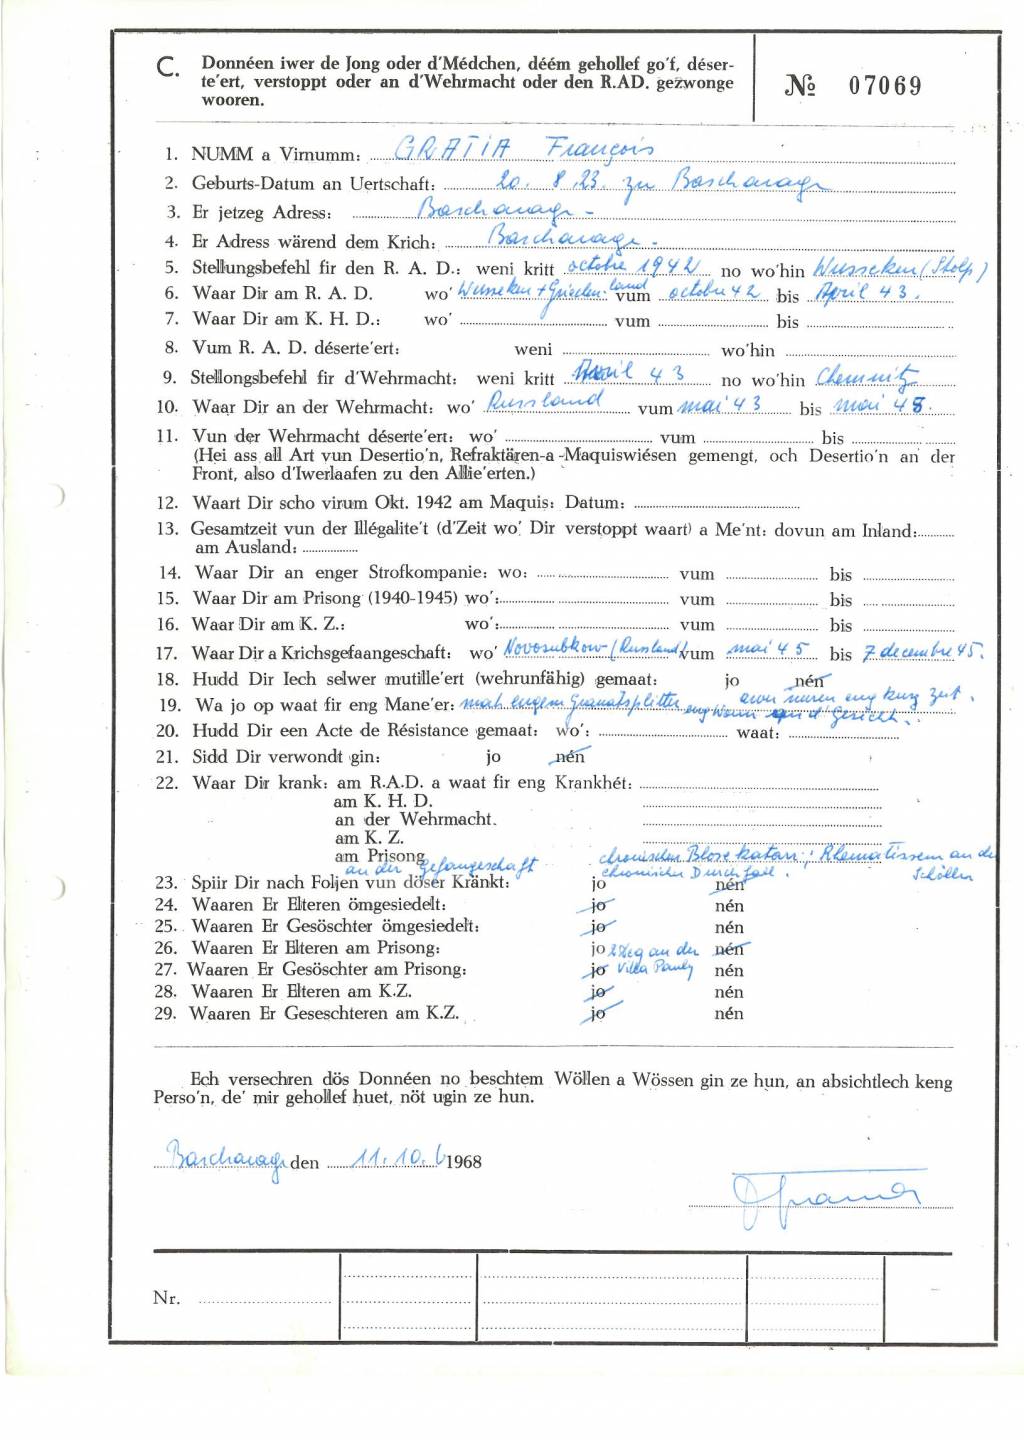 C. Donnéen iwer de Jong oder d'Médchen, déém gehollef go'f, déser-
te'ert, verstoppt oder an d'Wehrmacht oder den R.AD. gezwonge
wooren.
№ 07069
1. NUMM a Virnumm: GRATIA François
2. Geburts-Datum an Uertschaft: 20. 8. 23. zu Bascharage
3. Er jetzeg Adress: Bascharage -
4. Er Adress wärend dem Krich: Bascharage -
5. Stellungsbefehl fir den R. A. D.: weni kritt octobre 1942 no wo'hin Wusseken (Stolp)
6. Waar Dir am R. A. D. wo' Wusseken + Friedenland vum octobre 42 bis April 43.
7. Waar Dir am K. H. D.: wo' vum bis
8. Vum R. A. D. déserte'ert: weni wo'hin
9. Stellongsbefehl fir d'Wehrmacht: weni kritt April 43 no wo'hin Chemnitz
10. Waar Dir an der Wehrmacht: wo' Russland vum mai 43 bis mai 45.
11. Vun der Wehrmacht déserte'ert: wo' vum bis
(Hei ass all Art vun Desertio'n, Refraktären-a-Maquiswiésen gemengt, och Desertio'n an der
Front, also d'Iwerlaafen zu den Allie'erten.)
12. Waart Dir scho virum Okt. 1942 am Maquis: Datum:
13. Gesamtzeit vun der Illégalite't (d'Zeit wo' Dir verstoppt waart) a Me'nt: dovun am Inland:
am Ausland:
14. Waar Dir an enger Strofkompanie: wo: vum bis
15. Waar Dir am Prisong (1940-1945) wo': vum bis
16. Waar Dir am K. Z.: wo': vum bis
17. Waar Dir a Krichsgefaangeschaft: wo' Novosubkow (Russland) vum mai 45 bis 7 decembre 45.
18. Hudd Dir Iech selwer mutille'ert (wehrunfähig) gemaat: jo nén
19. Wa jo op waat fir eng Mane'er: mat engem Granatsplitter awer nuren eng kurz Zeit.
eng Wonn an d' Gesicht.
20. Hudd Dir een Acte de Résistance gemaat: wo': waat:
21. Sidd Dir verwondt gin: jo nén
22. Waar Dir krank: am R.A.D. a waat fir eng Krankhét:
am K. H. D.
an der Wehrmacht.
am K. Z.
am Prisong chronischen Blosekatarr, Rhematissem an de
an der Gefangeschaft chronischer Durchfall. Schöllen
23. Spiir Dir nach Foljen vun döser Kränkt: jo nén
24. Waaren Er Elteren ömgesiedelt: jo nén
25. Waaren Er Gesöschter ömgesiedelt: jo nén
26. Waaren Er Elteren am Prisong: jo 2 Deg an der nén
27. Waaren Er Gesöschter am Prisong: jo Villa Pauly nén
28. Waaren Er Elteren am K.Z. jo nén
29. Waaren Er Geseschteren am K.Z. jo nén
Ech versechren dös Donnéen no beschtem Wöllen a Wössen gin ze hun, an absichtlech keng
Perso'n, de' mir gehollef huet, nöt ugin ze hun.
Bascharage den 11. 10. 1968
Nr.